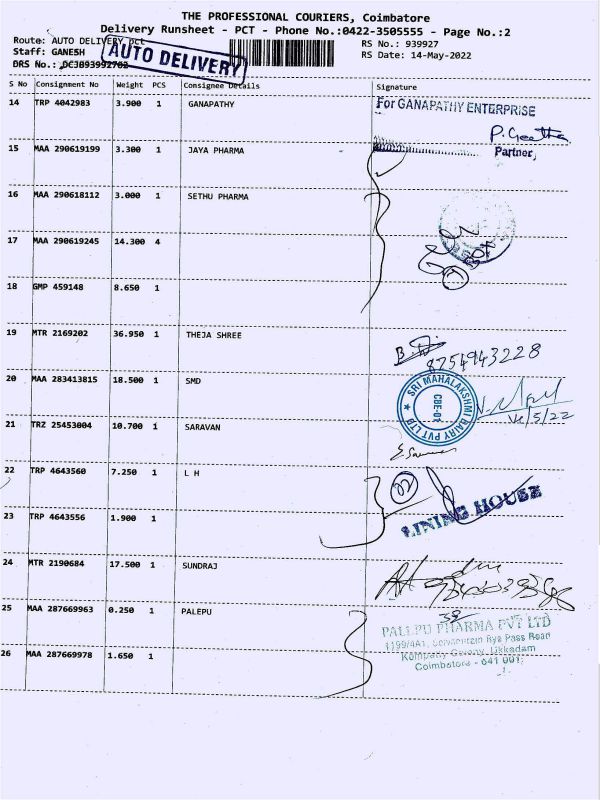 THE PROFESSIONAL COURIERS, Coimbatore
Delivery Runsheet - PCT - Phone No.:0422-3505555 - Page No.:2
Route: AUTO DELIVERY pct
RS No.: 939927
Staff: GANESH
RS Date: 14-May-2022
DRS No.:
AUTO DELIVERY
S No Consignment No Weight PCS Consignee Details Signature
14 TRP 4042983 3.900 1 GANAPATHY
For GANAPATHY ENTERPRISE
P. Geetha
Partner
15 MAA 290619199 3.300 1 JAYA PHARMA
16 MAA 290618112 3.000 1 SETHU PHARMA
17 MAA 290619245 14.300 4
18 GMP 459148 8.650 1
19 MTR 2169202 36.950 1 THEJA SHREE
8754943228
20 MAA 283413815 18.500 1 SMD
SRI MAHALAKSHMI DAIRY PVT LTD
CBE-01
14/5/22
21 TRZ 25453004 10.700 1 SARAVAN
22 TRP 4643560 7.250 1 L H
02
LINING HOUSE
23 TRP 4643556 1.900 1
24 MTR 2190684 17.500 1 SUNDRAJ
25 MAA 287669963 0.250 1 PALEPU
PALEPU PHARMA PVT LTD
1199/4A1, Bye Pass Road
Ukkadam
Coimbatore - 641 001
26 MAA 287669978 1.650 1